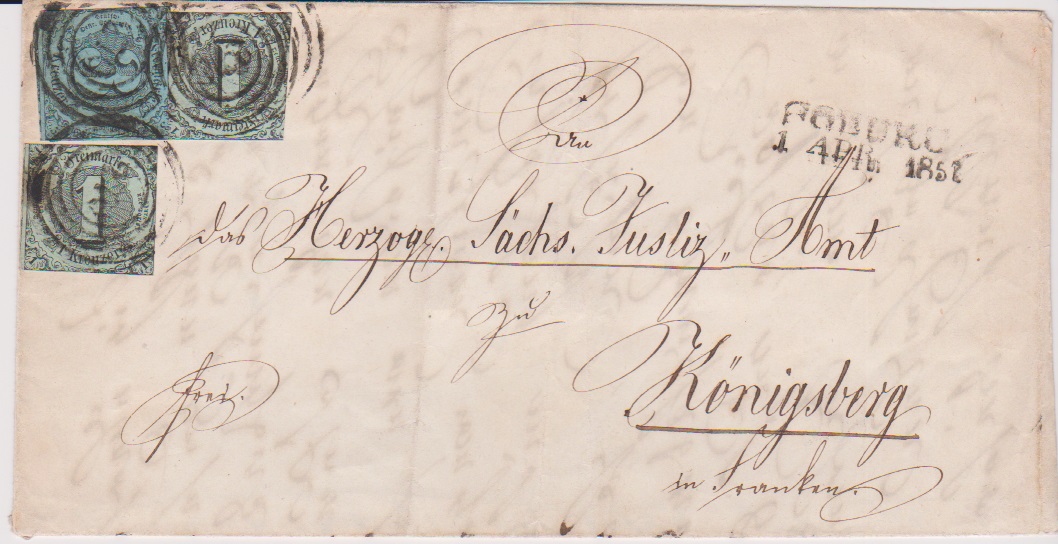 3
1 Kreuzer.
1
Kreuzer
Freimarke
1
1 Kreuzer.
COBURG
1 APR. 185
An
das Herzogl. Sächs. Justiz„ Amt
zu
Königsberg
frei.
in Franken.